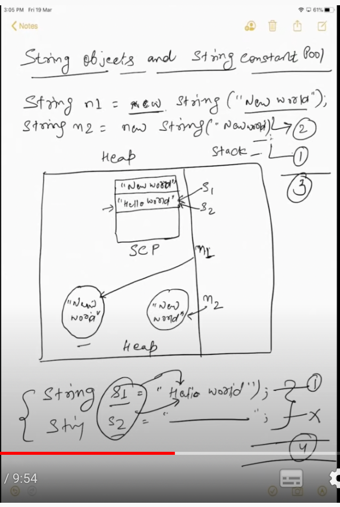 3:05 PM Fri 19 Mar
61%
Notes
String objects and String constant Pool
String n1 = new String ("New world");
String n2 = new String("New world") 2
Stack 1
Heap
3
"New world"
"Hello world"
S1
S2
SCP
n1
"New world"
"New world"
n2
Heap
String S1 = "Hello world"); 1
S2 = " "; X
4
/ 9:54